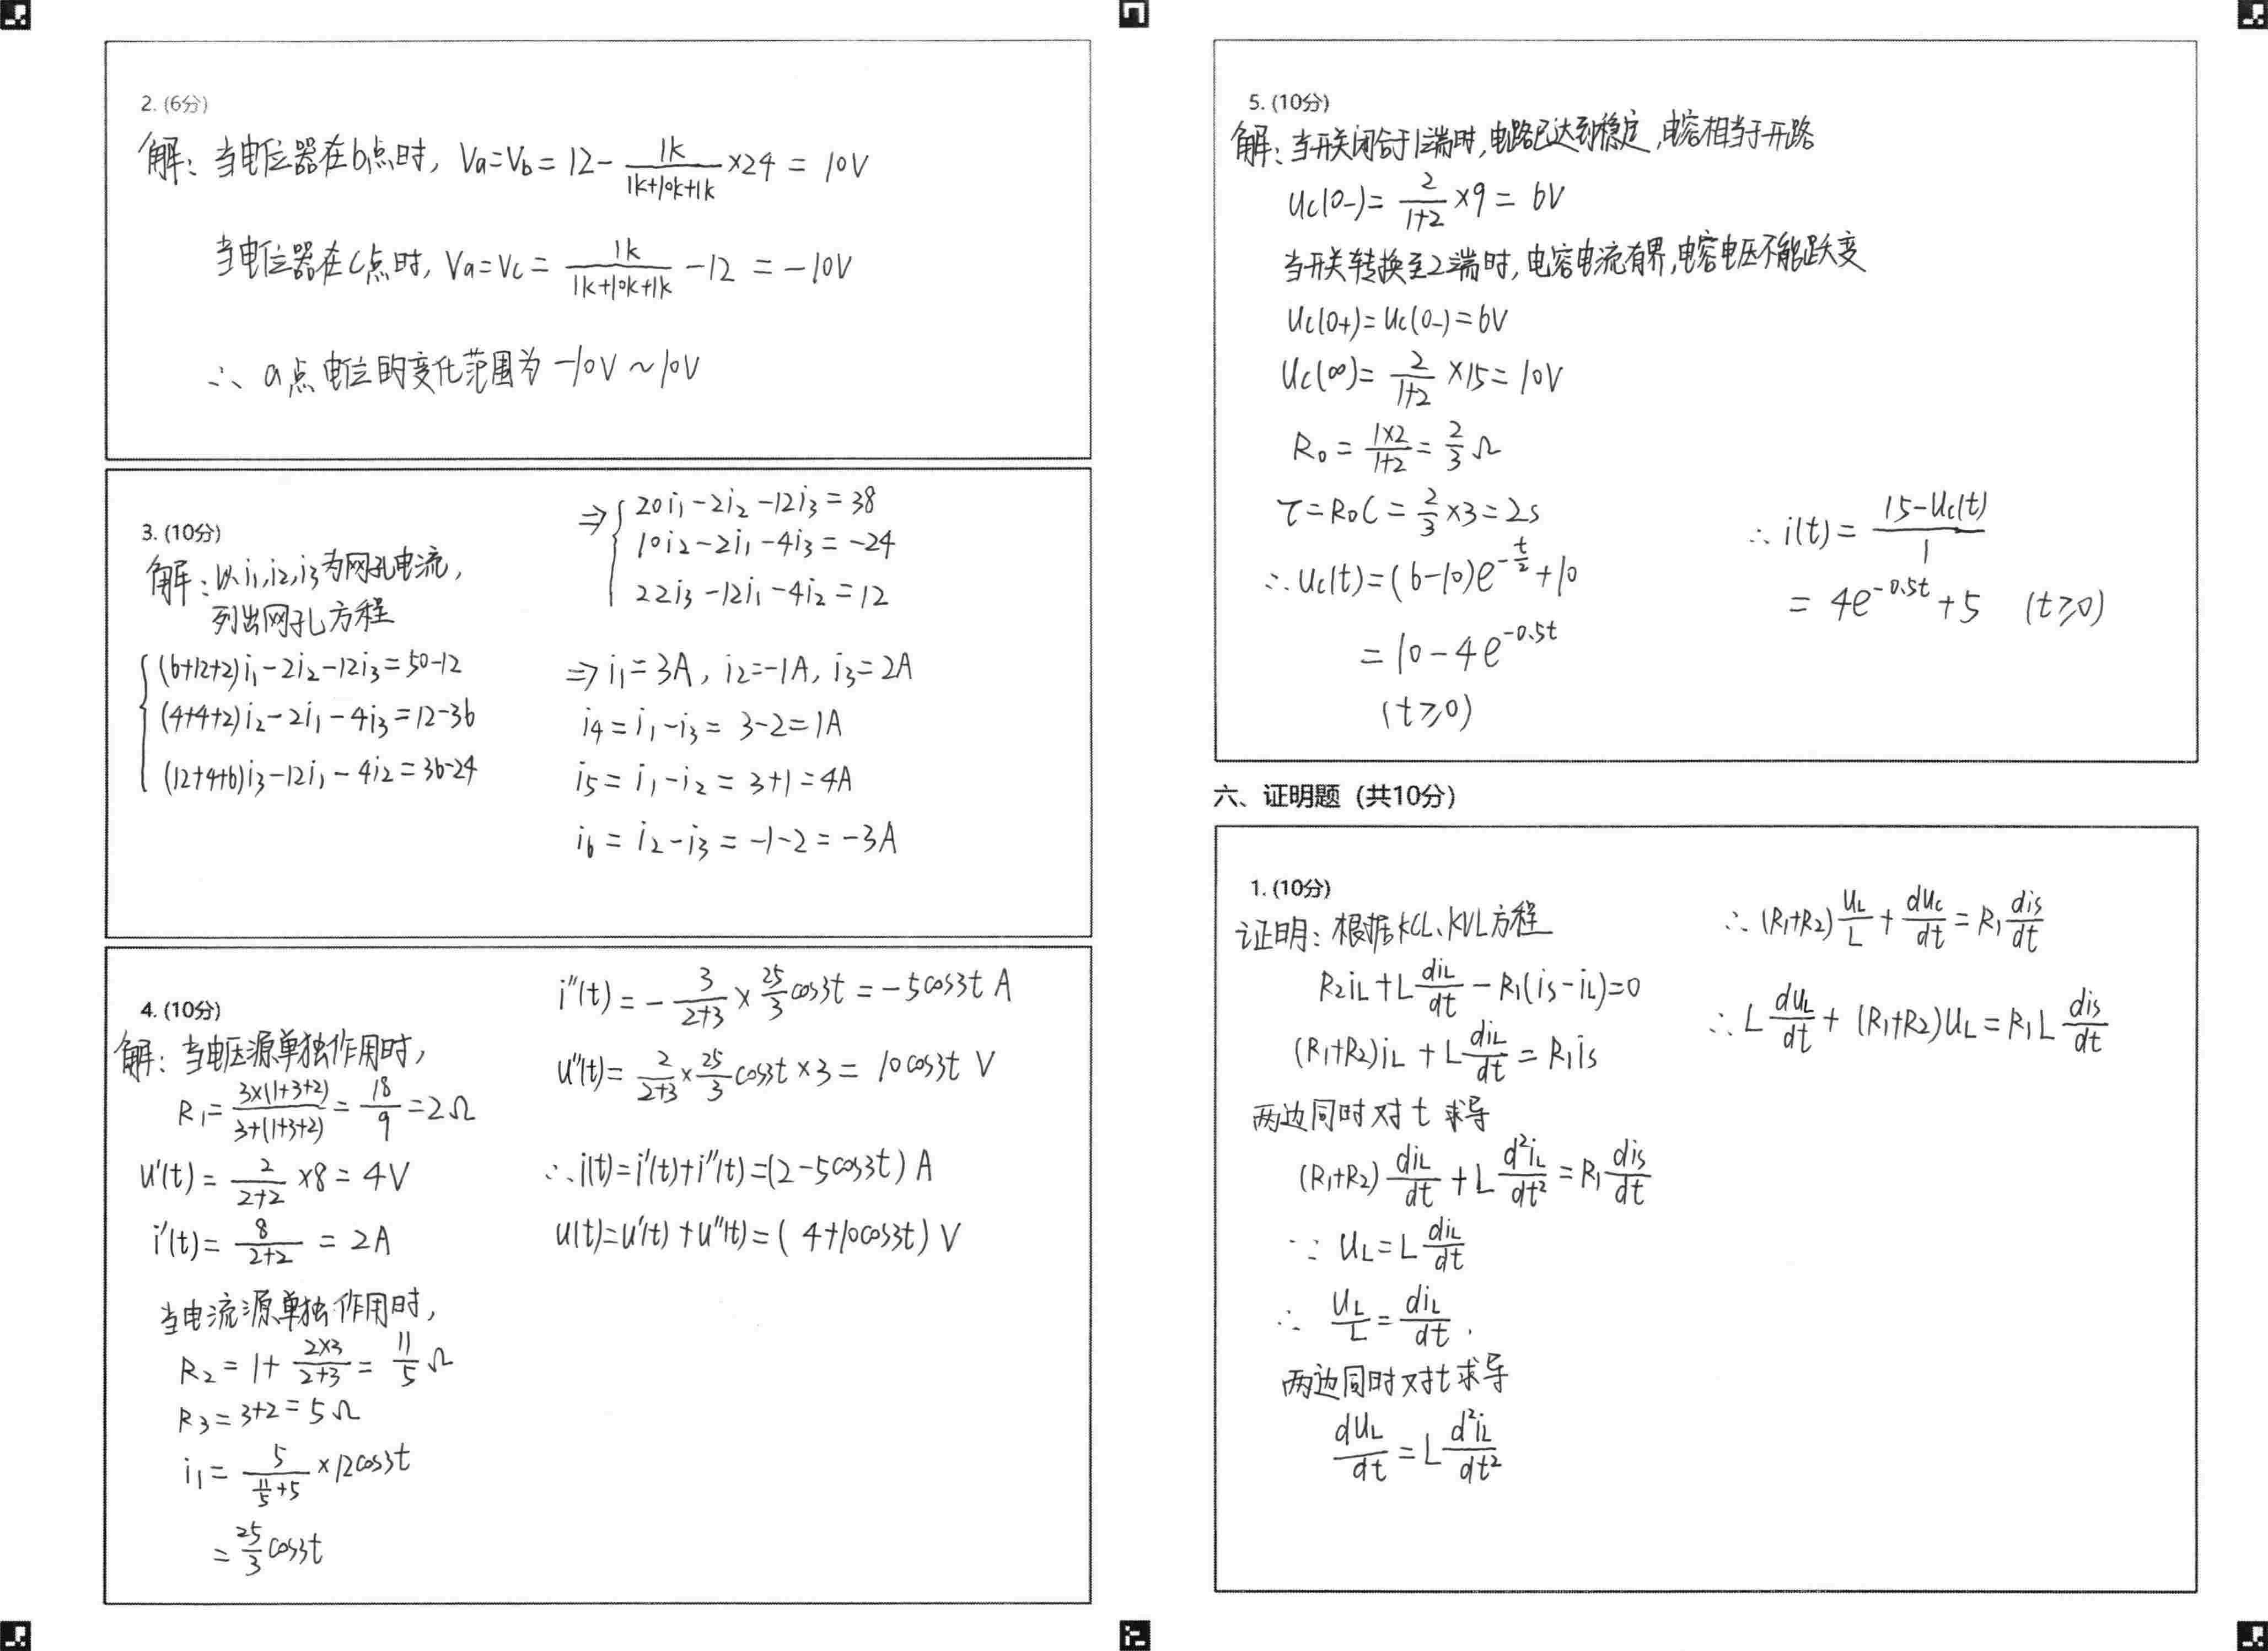 2. (6分)
解：当电位器在b点时，Va=Vb=12-\frac{1k}{1k+10k+1k}×24=10V
当电位器在c点时，Va=Vc=\frac{1k}{1k+10k+1k}-12=-10V
∴ a点电位的变化范围为-10V～10V
3. (10分)
解：以i₁,i₂,i₃为网孔电流，
列出网孔方程
(6+12+2)i₁-2i₂-12i₃=50-12
(4+4+2)i₂-2i₁-4i₃=12-36
(12+4+6)i₃-12i₁-4i₂=36-24
⇒ 20i₁-2i₂-12i₃=38
10i₂-2i₁-4i₃=-24
22i₃-12i₁-4i₂=12
⇒ i₁=3A，i₂=-1A，i₃=2A
i₄=i₁-i₃=3-2=1A
i₅=i₁-i₂=3+1=4A
i₆=i₂-i₃=-1-2=-3A
4. (10分)
解：当电压源单独作用时，
R₁=\frac{3×(1+3+2)}{3+(1+3+2)}=\frac{18}{9}=2Ω
u'(t)=\frac{2}{2+2}×8=4V
i'(t)=\frac{8}{2+2}=2A
当电流源单独作用时，
R₂=1+\frac{2×3}{2+3}=\frac{11}{5}Ω
R₃=3+2=5Ω
i₁=\frac{5}{\frac{11}{5}+5}×12cos3t
=\frac{25}{3}cos3t
i''(t)=-\frac{3}{2+3}×\frac{25}{3}cos3t=-5cos3t A
u''(t)=\frac{2}{2+3}×\frac{25}{3}cos3t×3=10cos3t V
∴i(t)=i'(t)+i''(t)=(2-5cos3t) A
u(t)=u'(t)+u''(t)=(4+10cos3t) V
5. (10分)
解：当开关闭合于1端时，电路已达到稳定，电容相当于开路
uc(0-)=\frac{2}{1+2}×9=6V
当开关转换至2端时，电容电流有界，电容电压不能跃变
uc(0+)=uc(0-)=6V
uc(∞)=\frac{2}{1+2}×15=10V
R₀=\frac{1×2}{1+2}=\frac{2}{3}Ω
τ=R₀C=\frac{2}{3}×3=2s
∴uc(t)=(6-10)e^{-\frac{t}{2}}+10
=10-4e^{-0.5t}
(t≥0)
∴i(t)=\frac{15-uc(t)}{1}
=4e^{-0.5t}+5 (t≥0)
六、证明题（共10分）
1. (10分)
证明：根据KCL、KVL方程
R₂i_L+L\frac{di_L}{dt}-R₁(is-i_L)=0
(R₁+R₂)i_L+L\frac{di_L}{dt}=R₁is
两边同时对t求导
(R₁+R₂)\frac{di_L}{dt}+L\frac{d²i_L}{dt²}=R₁\frac{dis}{dt}
∵ u_L=L\frac{di_L}{dt}
∴ \frac{u_L}{L}=\frac{di_L}{dt}.
两边同时对t求导
\frac{du_L}{dt}=L\frac{d²i_L}{dt²}
∴(R₁+R₂)\frac{u_L}{L}+\frac{du_c}{dt}=R₁\frac{dis}{dt}
∴L\frac{du_L}{dt}+(R₁+R₂)u_L=R₁L\frac{dis}{dt}